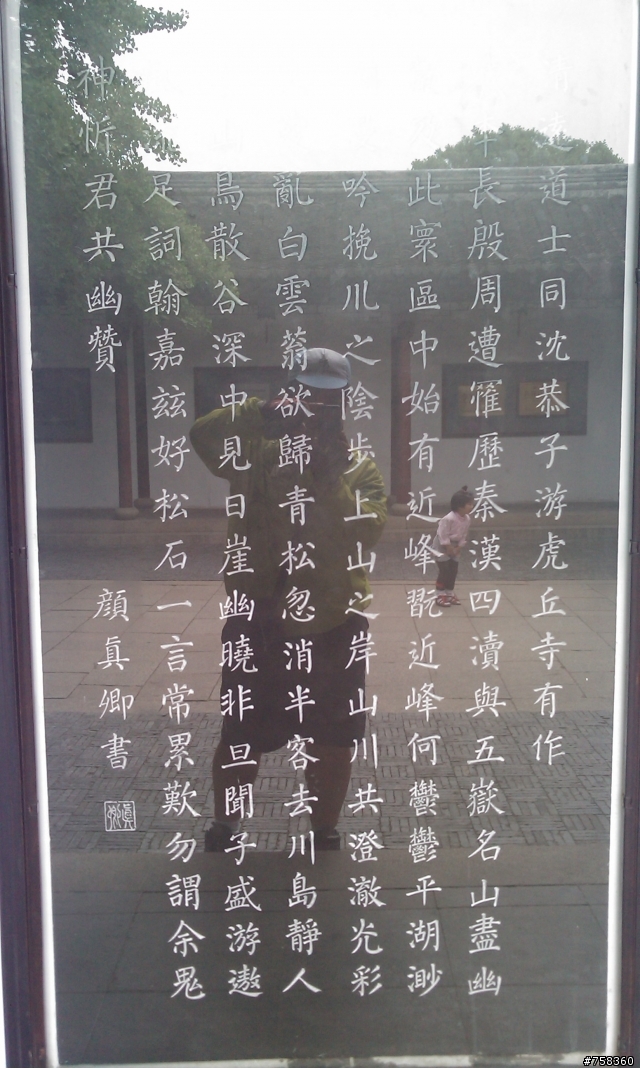 道士同沈恭子游虎丘寺有作
長殷周遭罹歷秦漢四瀆與五嶽名山盡幽
此寰區中始有近峰翫近峰何鬱鬱平湖渺
吟挽川之陰步上山之岸山川共澄澈光彩
亂白雲蓊欲歸青松忽消半客去川島靜人
鳥散谷深中見日崖幽曉非旦聞子盛游遨
足詞翰嘉茲好松石一言常累歎勿謂余鬼
神忻君共幽贊
顔眞卿書
#758360